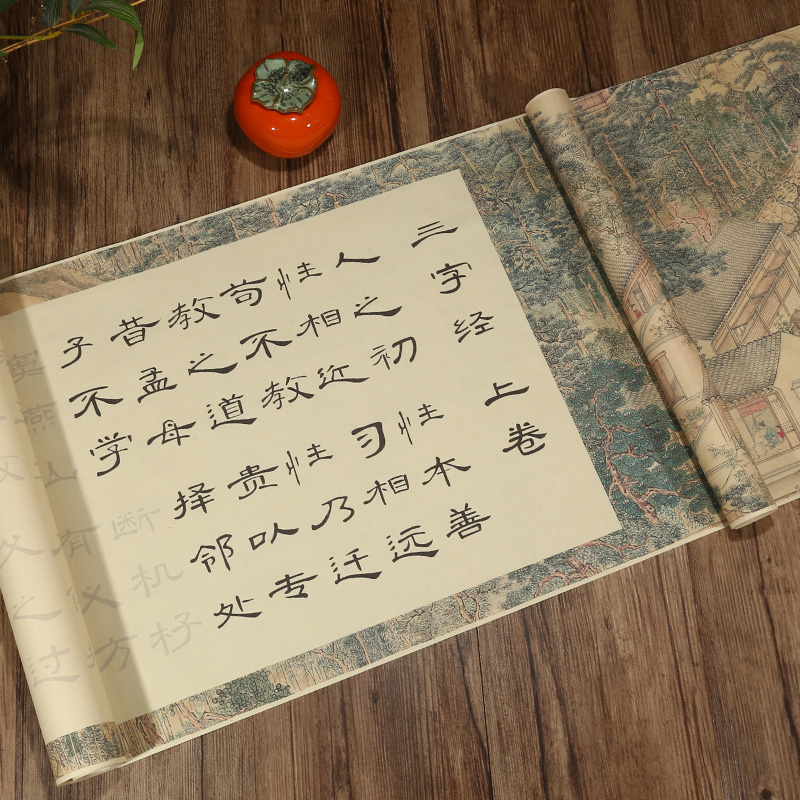 三字经 上卷
人之初 性本善
性相近 习相远
苟不教 性乃迁
教之道 贵以专
昔孟母 择邻处
子不学 断机杼
窦燕山 有义方
父之过